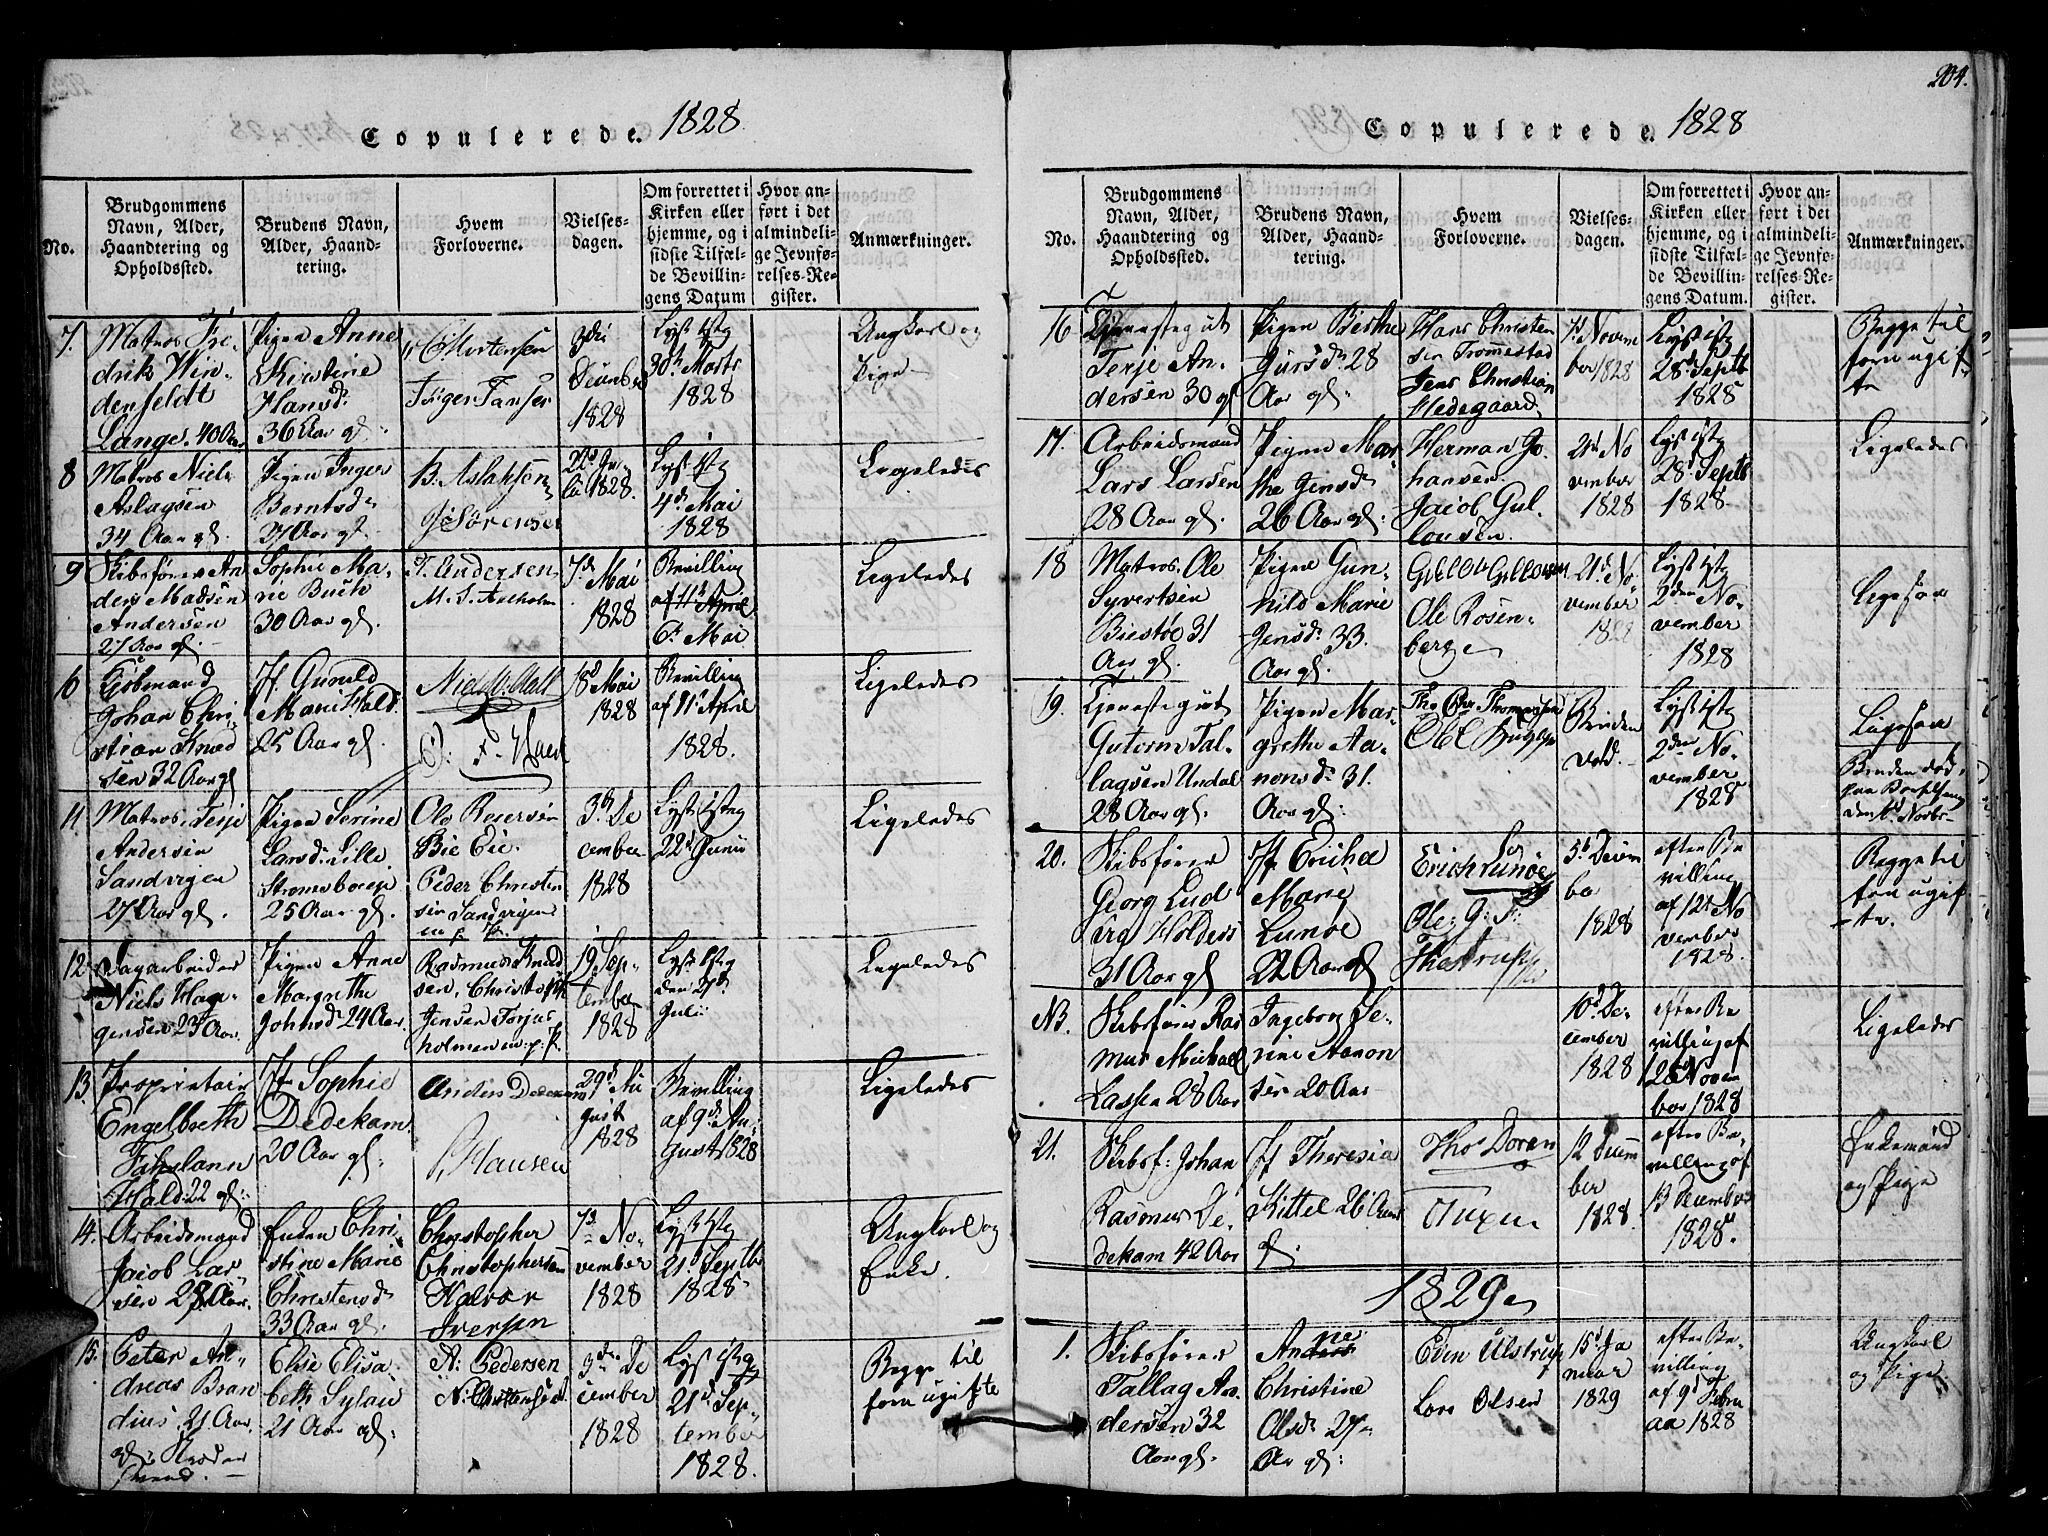 204.
Copulerede. 1828
No.
Brudgommens
Navn, Alder,
Haandtering og
Opholdssted.
Brudens Navn,
Alder, Haand-
tering.
Hvem
Forloverne.
Vielses-
dagen.
Om forrettet i
Kirken eller
hjemme, og i
sidste Tilfæl-
de Bevillin-
gens Datum
Hvor an-
ført i det
almindeli-
ge Jevnfø-
relses-Re-
gister.
Anmærkninger.
7.
Matros Fre-
drik Win-
denfeldt
Lange. 40 Aar
Pigen Anne
Kirstine
Hansd:
36 Aar gl:
C Mortensen
1828
Lyst 1ste G
30te Marts
1828
Ungkarl og
Pige
8
Matros Niels
Aslagsen
34 Aar gl.
Pigen Inger
Berntsd
27 Aar gl.
B. Aslaksen
J Sørensen
1828.
Lyst 1ste G
4de Mai
1828
Ligeledes
9
Skibsfører An-
ders Madsen
Andersen
27 Aar gl.
Sophie Ma-
rie Buch
30 Aar gl.
T. Andersen
7de Mai
1828
Bevilling
af 11te April
6te Mai
Ligeledes
10
Kjøbmand
Johan Chri-
stian Knud
sen 32 Aar gl
Jf. Gunild
Marie Hald.
25 Aar gl.
18de Mai
1828
Bevilling
af 11te April
1828.
Ligeledes
11
Matros Terje
Andersen
Sandvigen
27 Aar gl.
Pigen Serine
Larsd: Lille
25 Aar gl.
Ole Roersen
Bie Eie.
Peder Christen
sen Sandvigen
m. p. P.
3de De
cember
1828
Lyst 1ste G
22de Junii
Ligeledes
12
Dagarbeider
Niels Haa-
gensen 23 Aar.
Pigen Anne
Margrethe
Johnsd 24 Aar.
Rasmus Knud
sen, Christoph
Jensen Torjus
holmen m. p. P.
19 Sep-
tember
1828
Lyst 1ste G
den 27de
Julii
Ligeledes
13.
Proprietair
Engelbreth
Hald. 22 gl:
Jf Sophie
Dedekam
20 Aar gl:
Anders Dedekam
P. Hansen
29de Au
gust
1828
Bevilling
af 9de Au-
gust 1828
Ligeledes
14.
Arbeidsmand
Jacob Lar
sen 28 Aar.
Enken Chri-
stine Marie
Christensd
33 Aar gl.
Christopher
Christophersen
Halvor
Iversen
7de No-
vember
1828
Lyst 1ste G
21de Septbr
1828
Ungkarl og
Enke.
15.
Peter An-
dreas Bran
dius. 21 Aar
Else Elisa-
beth Sylau
21 Aar gl:
A: Pedersen
N. Christensen
3de De
cember
1828
Lyst 1ste G
21de Sep-
tember
1828.
Begge til
forn ugifte
Copulerede. 1828
No.
Brudgommens
Navn, Alder,
Haandtering og
Opholdssted.
Brudens Navn,
Alder, Haand-
tering.
Hvem
Forloverne.
Vielses-
dagen.
Om forrettet i
Kirken eller
hjemme, og i
sidste Tilfæl-
de Bevillin-
gens Datum.
Hvor an-
ført i det
almindeli-
ge Jevnfø-
relses-Re-
gister.
Anmærkninger.
16
Tjenestegut
Terje An-
dersen 30 gl
Pigen Birthe
28
Aar gl:
Hans Christen
sen Trommestad
Jens Christian
Hedegaard
7de Novem
ber 1828
Lyst 1ste G
28de Septb
1828
Begge til
forn ugif-
te
17.
Arbeidsmand
Lars Larsen
28 Aar gl.
Pigen Mar
the Jensd
26 Aar gl:
Herman Jo-
hansen.
Jacob Gul-
lovsen.
21de No
vember
1828
Lyst 1ste G
28de Septb
1828.
Ligeledes
18
Matros Ole
Syvertsen
Biestøe 31
Aar gl.
Pigen Gun-
hild Marie
Jensd: 33.
Aar gl:
Ole Rosen-
berge
21de No-
vember
1828
Lyst 1ste G
2den No-
vember
1828
Ligesaa
19.
Tjenestegut
Guttorm Tal-
lagsen Undal
28 Aar gl.
Pigen Mar-
grethe Aa-
nonsd: 31.
Aar gl:
Tho Chr Thomassen
Lyst 1ste G
2den No-
vember
1828
Ligesaa
Bruden død
paa Barselseng
20.
Skibsfører
Georg Lud
vig Holders
31 Aar gl
Jf Ericha
Marie
Lunøe
22 Aar gl
Erich Lunøe
Ole: G: F:
Thestrup
5te Decem
ber
1828
efter Be
villing
af 12te No
vember
1828.
Begge til
forn ugif-
te.
NB.
Skibsfører Ras
mus Michael
Lassen 28 Aar
Ingeborg Se-
rine Aanon
sen 20 Aar
10de De-
cember
1828
efter Be
villing af
26 Novem
ber 1828
Ligeledes
21.
Skibsf: Johan
Rasmus De-
dekam 42 Aar
Jf Theresia
Kittel 26 Aar
gl.
Tho Doran
12 Decem
ber
1828.
efter Be-
villing af
13 December
1828.
Enkemand
og Pige
1829
1.
Skibsfører
Tallag An-
dersen 32
Aar gl.
Anne
Christine
Olsd: 27
Aar gl:
Eden Ulstrup
Lars Olsen
15de Ja
nuar
1829
efter Be-
villing
af 9de Febru
aa 1828
Ungkarl
og Pige